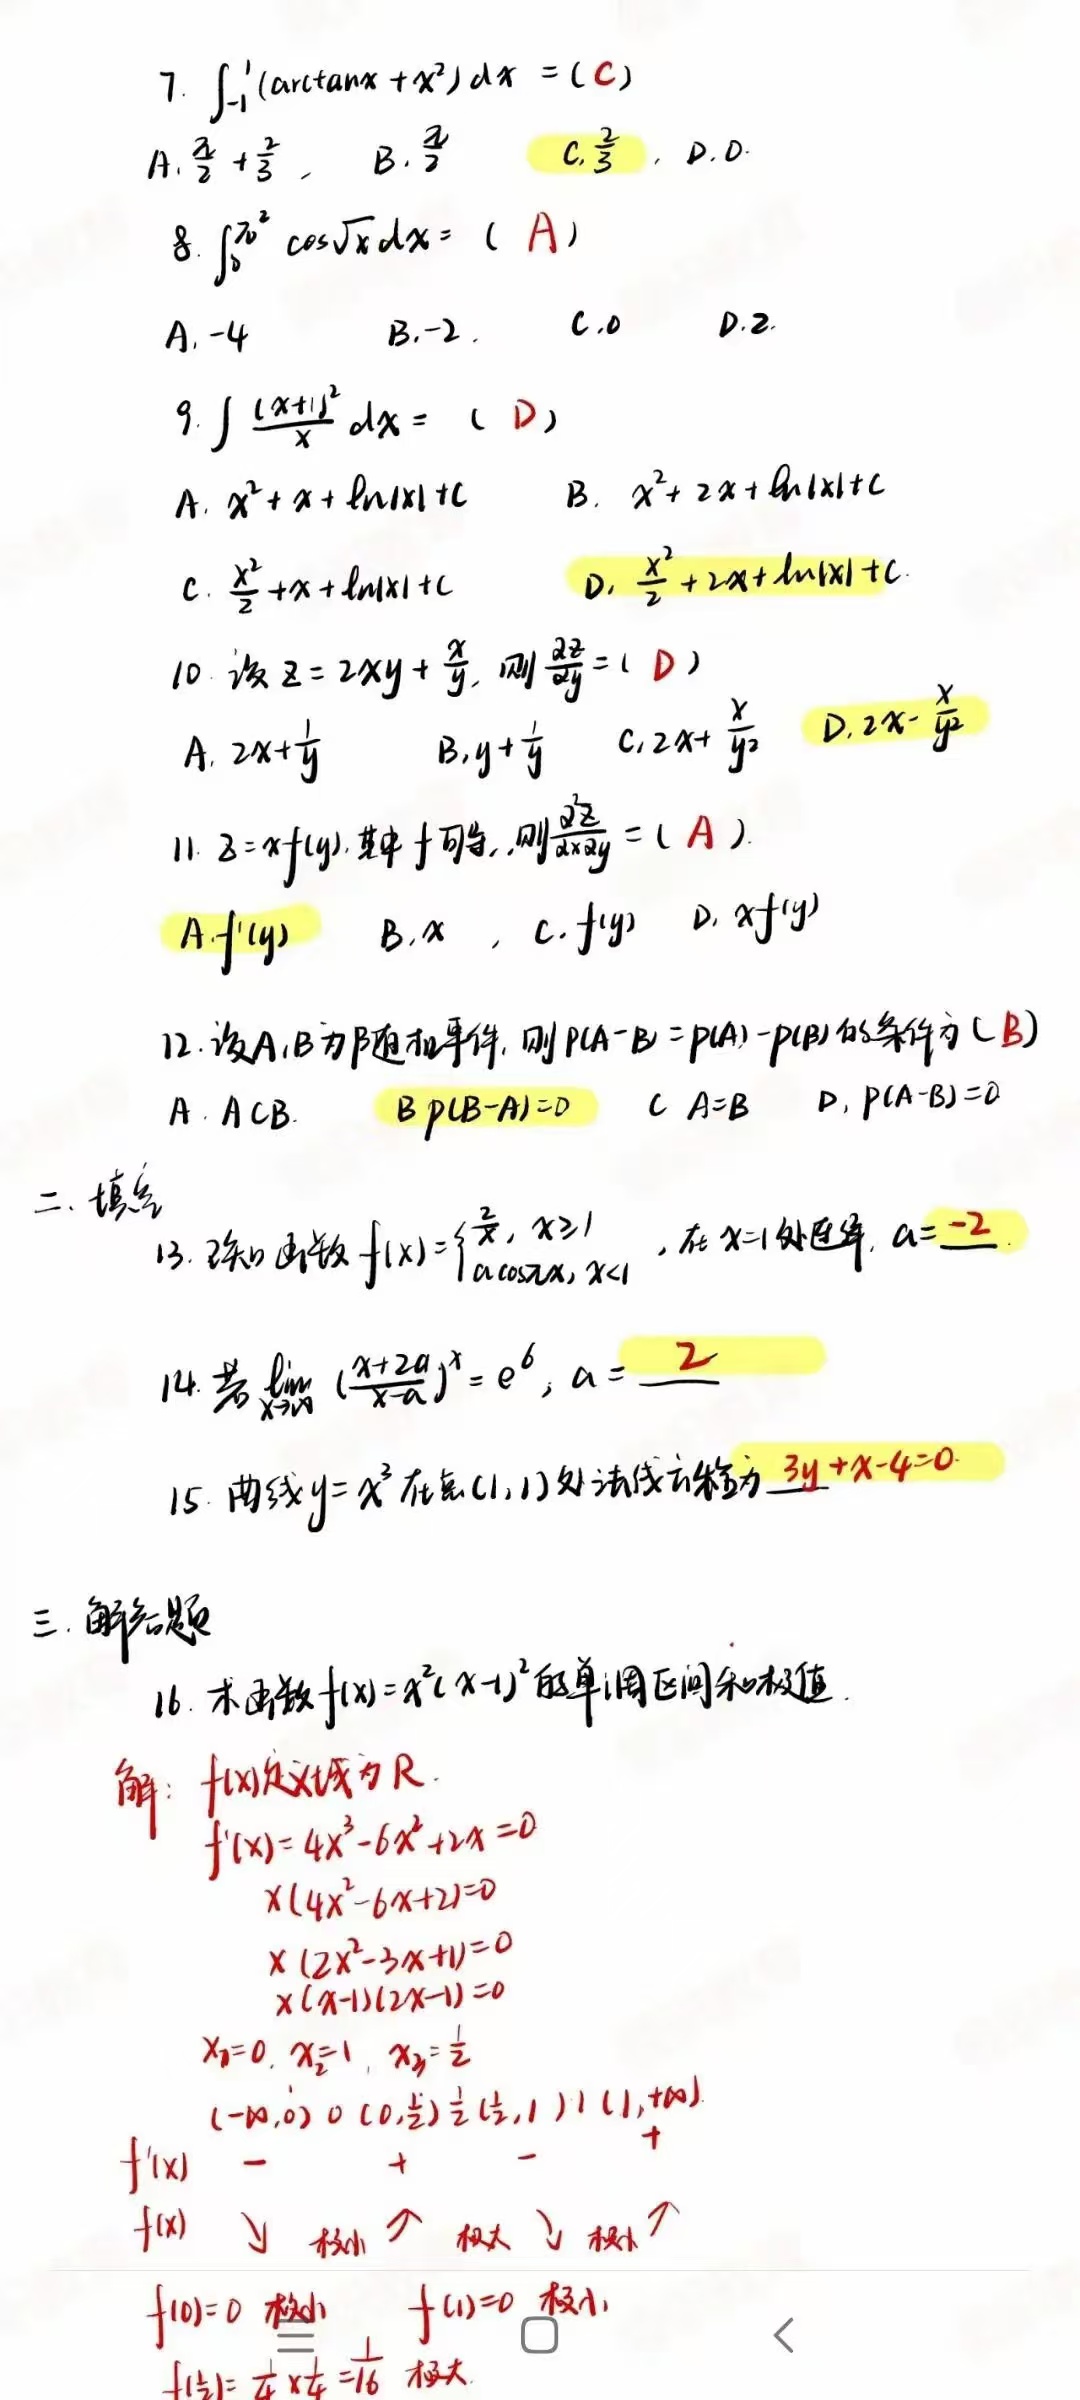 7. ∫₋₁¹ (arctanx + x²) dx = ( C )
A. π/2 + 2/3, B. π/2 C. 2/3, D. 0.
8. ∫₀^π² cos√x dx = ( A )
A. -4 B. -2. C. 0 D. 2.
9. ∫ (x+1)²/x dx = ( D )
A. x² + x + ln|x| + C B. x² + 2x + ln|x| + C
C. x²/2 + x + ln|x| + C D. x²/2 + 2x + ln|x| + C.
10. 设 z = 2xy + x/y, 则 ∂z/∂y = ( D )
A. 2x + 1/y B. y + 1/y C. 2x + x/y² D. 2x - x/y²
11. z = xf(y), 其中 f 可导, 则 ∂²z/∂x∂y = ( A ).
A. f'(y) B. x, C. f(y) D. xf(y)
12. 设A,B为随机事件, 则P(A-B) = P(A)-P(B)的条件为( B )
A. A⊂B. B P(B-A)=0 C A=B D. P(A-B)=0
二. 填空
13. 已知函数 f(x) = { 2/x, x≥1 acosπx, x<1 , 在 x=1 处连续, a= -2 .
14. 若 lim x→∞ ((x+2a)/(x-a))^x = e⁶, a = 2
15. 曲线 y = x³ 在点(1,1)处法线方程为 3y+x-4=0.
三. 解答题
16. 求函数f(x) = x²(x-1)²的单调区间和极值.
解: f(x)定义域为R.
f'(x) = 4x³-6x²+2x=0
x(4x²-6x+2)=0
x(2x²-3x+1)=0
x(x-1)(2x-1)=0
x₁=0, x₂=1, x₃=1/2
(-∞,0) 0 (0,1/2) 1/2 (1/2,1) 1 (1,+∞)
f'(x) - + - +
f(x) ↘ 极小 ↗ 极大 ↘ 极小 ↗
f(0)=0 极小 f(1)=0 极小
f(1/2)= 1/4 × 1/4 = 1/16 极大